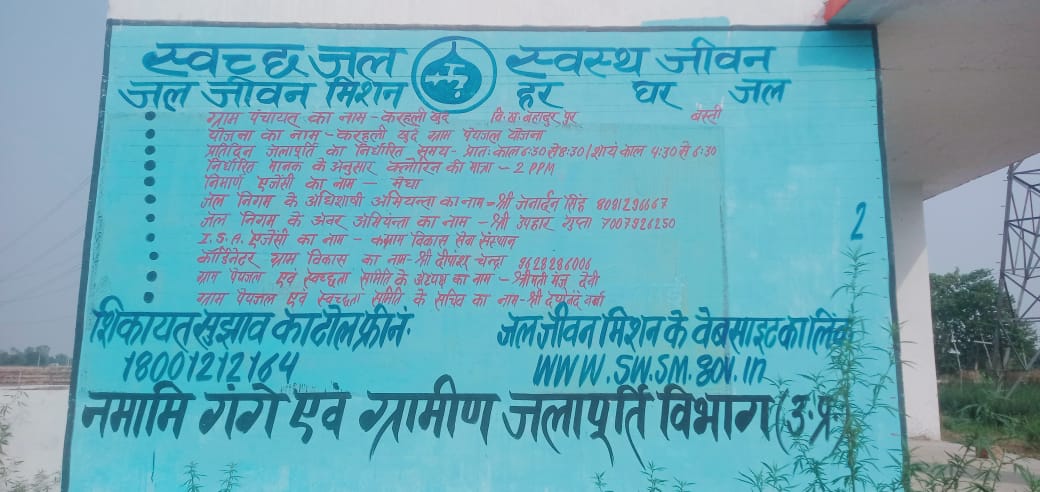 स्वच्छ जल स्वस्थ जीवन
जल जीवन मिशन हर घर जल
ग्राम पंचायत का नाम - करहली खुर्द वि.ख. बहादुर पुर बस्ती
योजना का नाम - करहली खुर्द ग्राम पेयजल योजना
प्रतिदिन जलापूर्ति का निर्धारित समय - प्रातः काल 6:30 से 8:30 / शायं काल 4:30 से 6:30
निर्धारित मानक के अनुसार क्लोरिन की मात्रा - 2 PPM
निर्माण एजेंसी का नाम - मेघा
जल निगम के अधिशाषी अभियन्ता का नाम = श्री जनार्दन सिंह 8081296667
जल निगम के अवर अभियंता का नाम - श्री उपहार गुप्ता 7007926250
I.S.A. एजेंसी का नाम - विकास सेवा संस्थान
कॉर्डिनेटर ग्राम विकास का नाम - श्री चन्द्रा 9628286006
ग्राम पेयजल एवं स्वच्छता समिति के अध्यक्ष का नाम - श्रीमती मंजू देवी
ग्राम पेयजल एवं स्वच्छता समिति के सचिव का नाम - श्री वर्मा
2
शिकायत सुझाव का टोल फ्री नं. जल जीवन मिशन के वेबसाइट का लिंक
18001212164 WWW.SWSM.gov.in
नमामि गंगे एवं ग्रामीण जलापूर्ति विभाग (उ.प्र.)